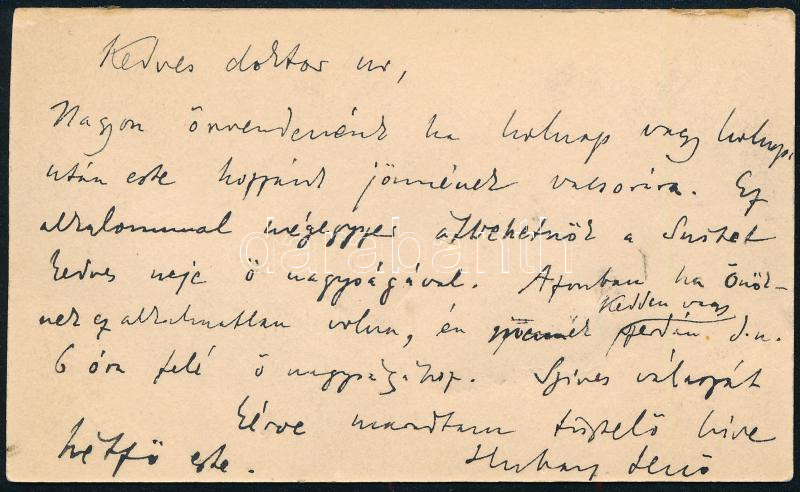 Kedves doktor ur,
Nagyon örvendenénk ha holnap vagy holnap-
után este hozzánk jönnének vacsorára. Ez
alkalommal mégegyszer átvehetnők a Suitet
kedves neje ő nagyságával. Azonban ha Önök-
Kedden vagy
nek ez alkalmatlan volna, én jönnék szerdán d.u.
6 óra felé ő nagyságához. Szives válaszát
kérve maradtam tisztelő hive
hétfő este. Hubay Jenő
darabanth